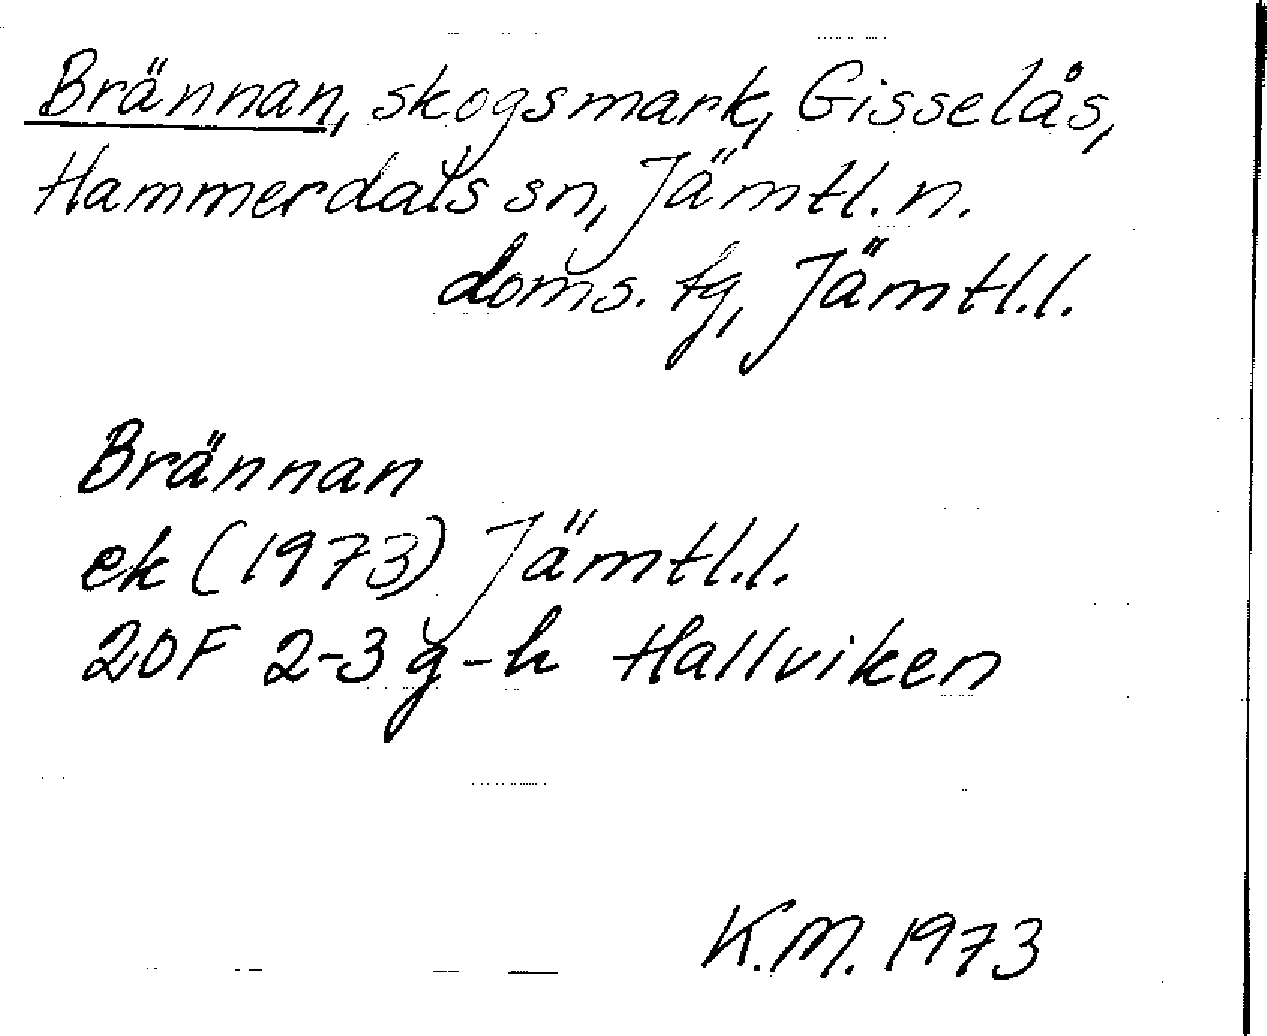 Brännan, skogsmark, Gisselås,
Hammerdals sn, Jämtl. n.
doms. tg, Jämtl.l.
Brännan
ek (1973) Jämtl.l.
20F 2-3 g-h Hallviken
K.M. 1973